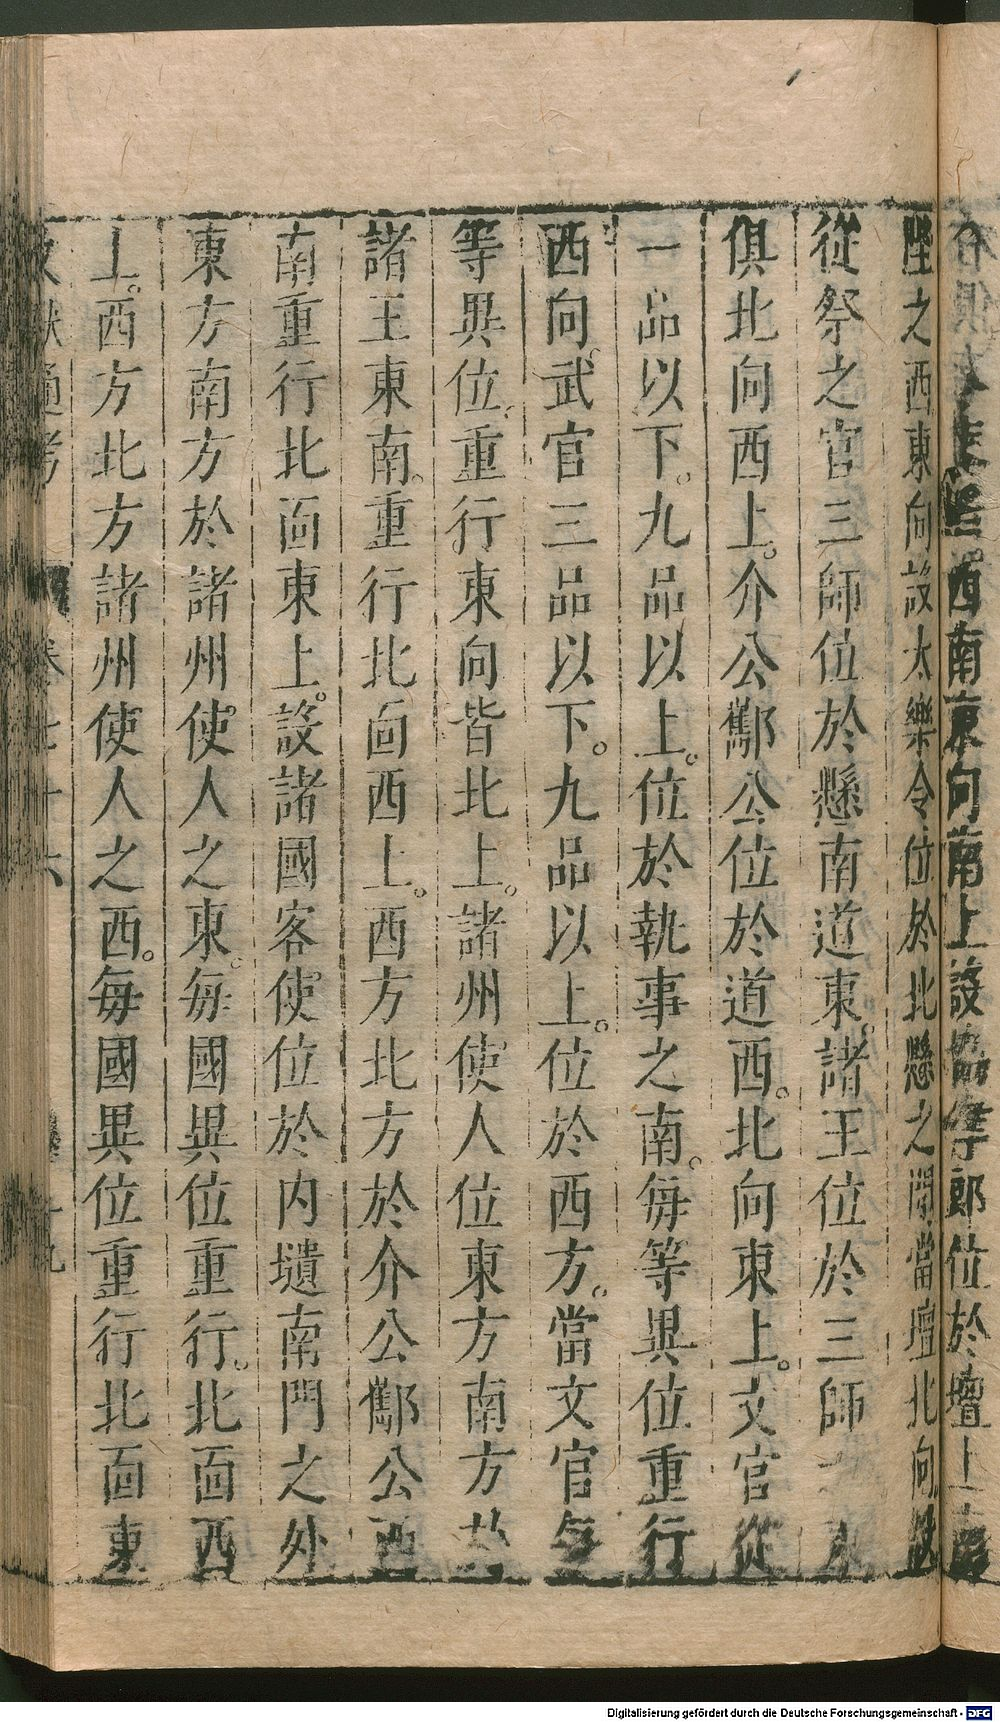 西南東向南上設
郎位於壇上
陛之西東向設太樂令位於北懸之間當壇北向設
從祭之官三師位於懸南道東諸王位於三師
俱北向西上介公酅公位於道西北向東上文官從
一品以下九品以上位於執事之南每等異位重行
西向武官三品以下九品以上位於西方當文官每
等異位重行東向皆北上諸州使人位東方南方於
諸王東南重行北面西上西方北方於介公酅公西
南重行北面東上設諸國客使位於內壝南門之外
東方南方於諸州使人之東每國異位重行北面西
上西方北方諸州使人之西每國異位重行北面東
文獻通考 卷七十六
Digitalisierung gefördert durch die Deutsche Forschungsgemeinschaft - DFG